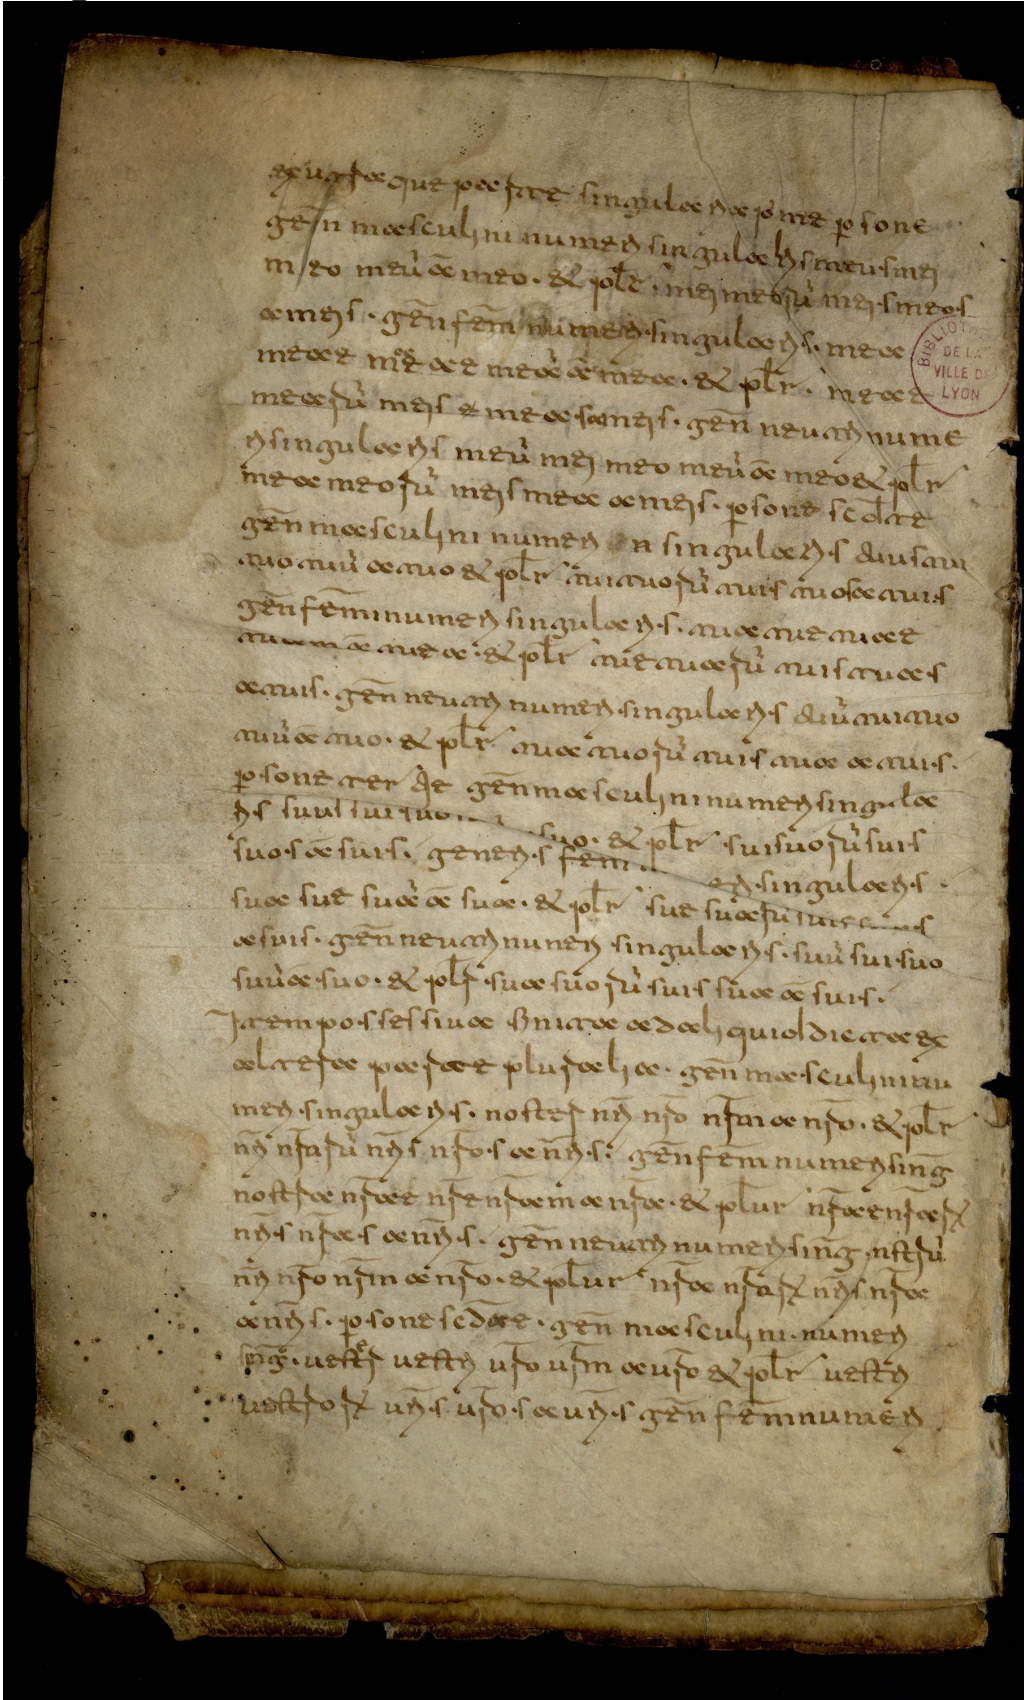 ex utraque parte singularia prime persone
gen̄ masculini numeri singularis meus mei
meo meū a meo · & plr̄ · mei meorū meis meos
a meis · gen̄ fem̄ numeri singularis · mea
meae meae meā ā mea · & plr̄ · meae
mearū meis meas a meis · gen̄ neutri nume
ri singularis meū mei meo meū ā meo & plr̄
mea meorū meis mea a meis · p̱sone sc̄dae
gen̄ masculini numeri singularis tuus tui
tuo tuū a tuo & plr̄ tui tuorū tuis tuos a tuis
gen̄ fem̄ numeri singularis · tua tue tuae
tuam ā tua · & plr̄ tue tuarū tuis tuas
a tuis · gen̄ neutri numeri singularis tuū tui tuo
tuū ā tuo · & plr̄ tua tuorū tuis tua a tuis ·
p̱sone tertie gen̄ masculini numeri singula
ris suus sui suo suo · & plr̄ sui suorū suis
suos ā suis · generis fem eri singularis ·
sua sue suā ā sua · & plr̄ sue suarū
a suis · gen̄ neutri numeri singularis · suū sui suo
suū a suo · & plr̄ sua suorū suis sua ā suis ·
Item possessiva finita ad aliquid dicta ex
altera parte pluralia · gen̄ masculini nu
meri singularis · noster nr̄i nr̄o nr̄m a nr̄o · & plr̄
nr̄i nr̄orū nr̄is nr̄os a nr̄is · gen̄ fem numeri sinḡ
nostra nr̄ae nr̄e nr̄am a nr̄a · & plur nr̄ae nr̄aꝝ
nr̄is nr̄as a nr̄is · gen̄ neutri numeri sinḡ · nr̄trū
nr̄i nr̄o nr̄m a nr̄o · & plur nr̄a nr̄oꝝ nr̄is nr̄a
a nr̄is · p̱sone sc̄dae · gen̄ masculini · numeri
sinḡ · vester vestri vr̄o vr̄m a vr̄o & plr̄ vestri
vestroꝝ vr̄is vr̄os a vr̄is gen̄ fem numeri
BIBLIOTH
DE LA
VILLE DE
LYON